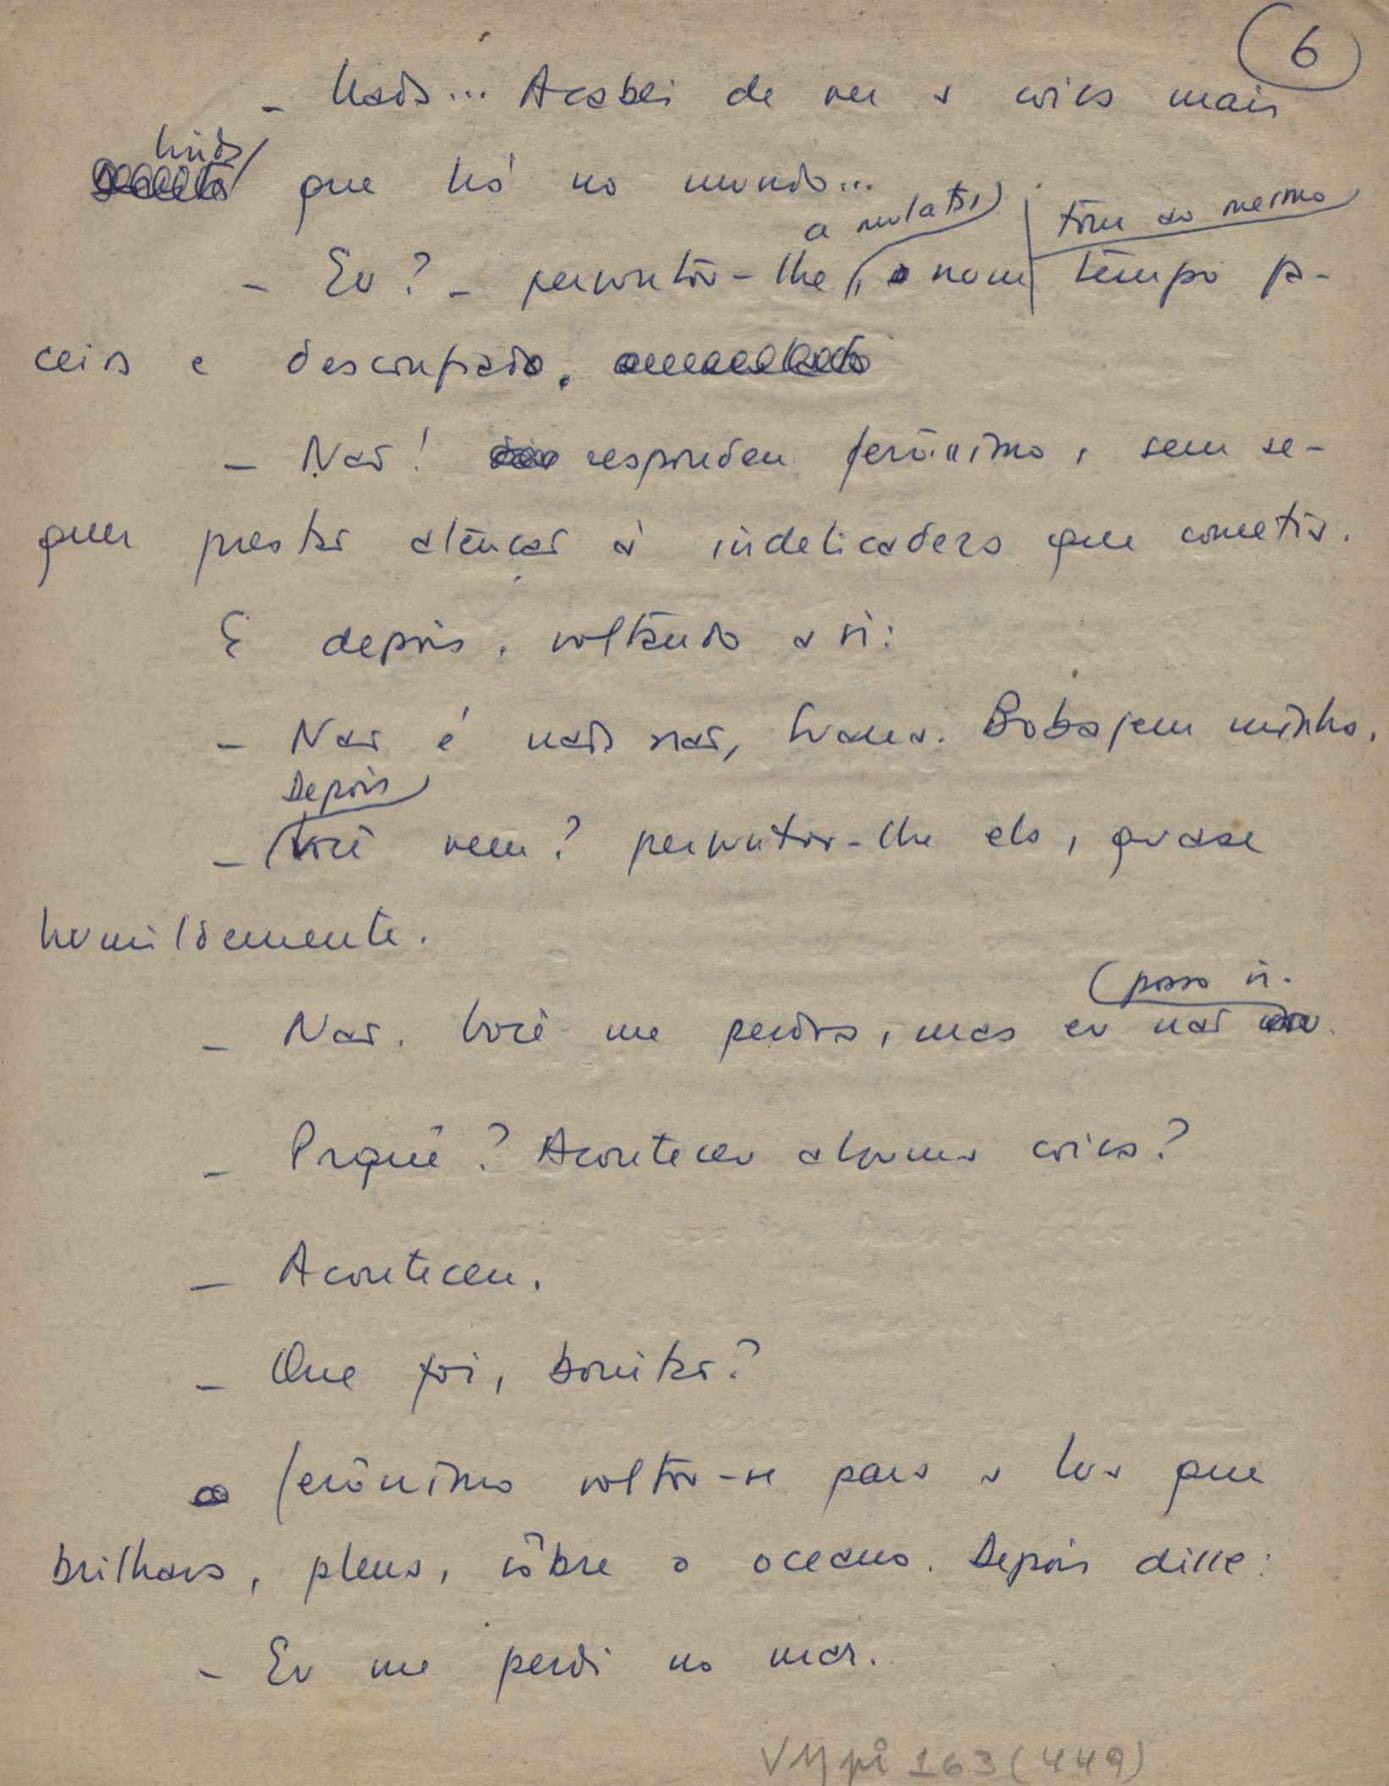 6
- Nada... Acabei de ver a coisa mais
linda
que há no mundo...
a mulata, tom ao mesmo
- Eu? - perguntou-lhe, num tempo fa-
ceira e desconfiada.
- Não! respondeu Jerônimo, sem se-
quer prestar atenção à indelicadeza que cometia.
E depois, voltando a si:
- Não é nada não, Ivana. Bobajem minha.
Depois
- Você vem? perguntou-lhe ela, quase
humildemente.
posso ir.
- Não. Você me perdoa, mas eu não
- Porquê? Aconteceu alguma coisa?
- Aconteceu.
- Que foi, bonitão?
Jerônimo voltou-se para a lua que
brilhava, plena, sôbre o oceano. Depois disse:
- Eu me perdi no mar.
VMpi 163 (449)